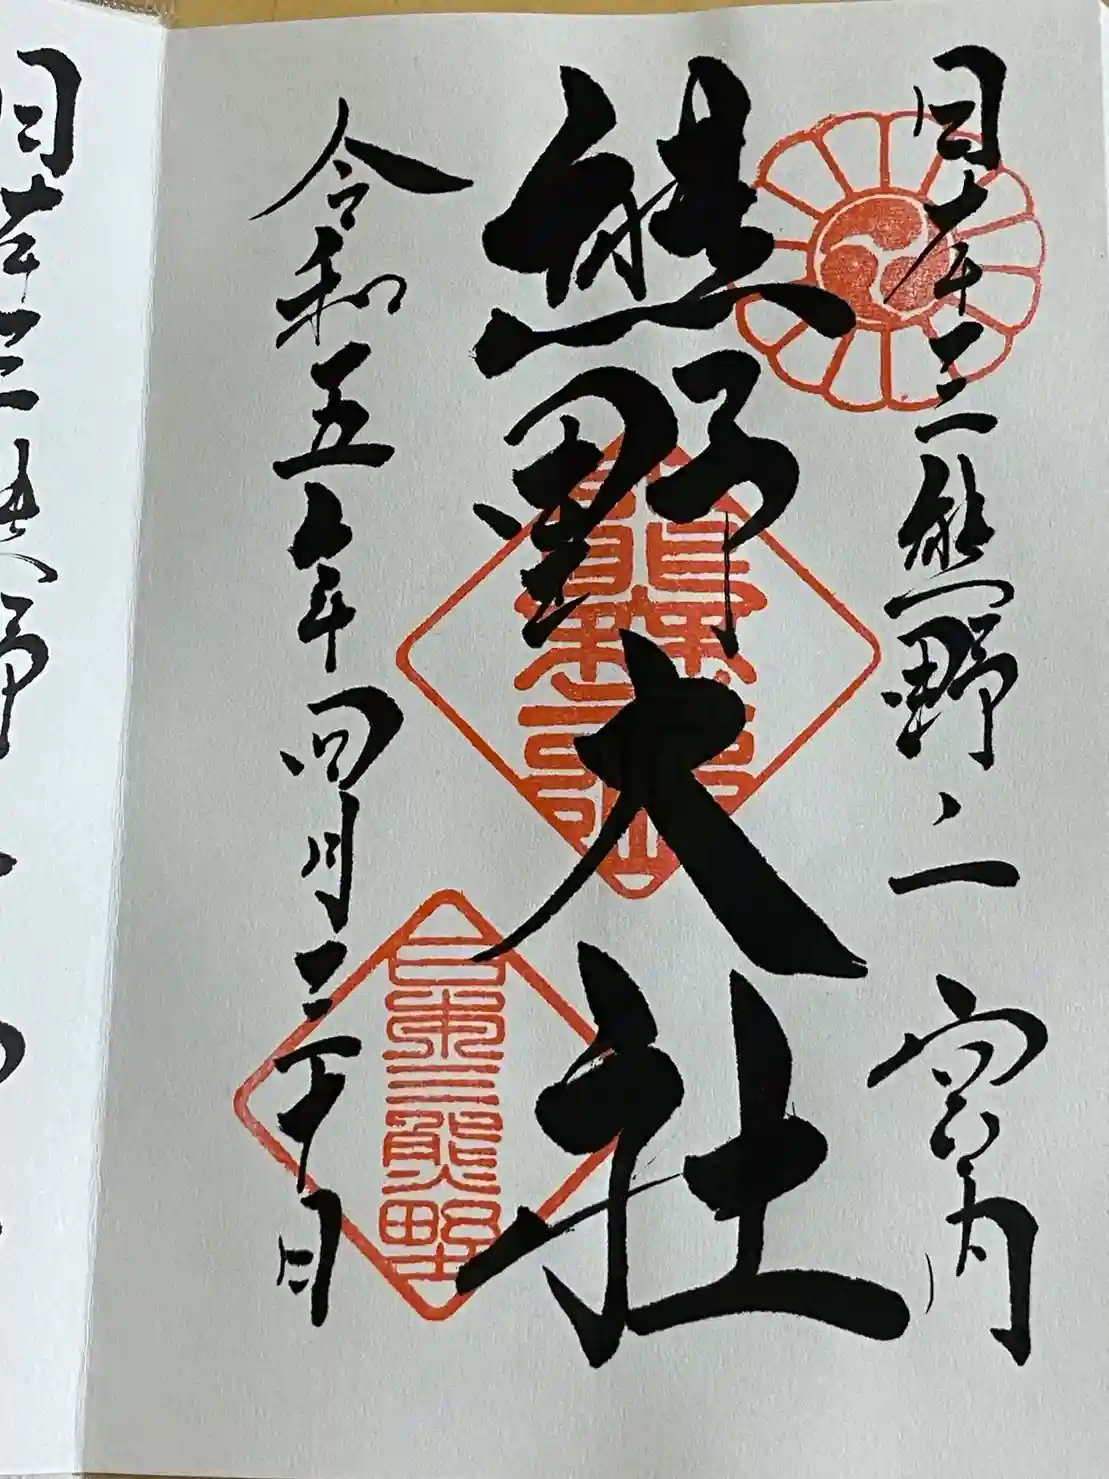 日本三熊野之一 宮内
熊野大社
令和五年四月三十日
日本三熊野
日本三熊野